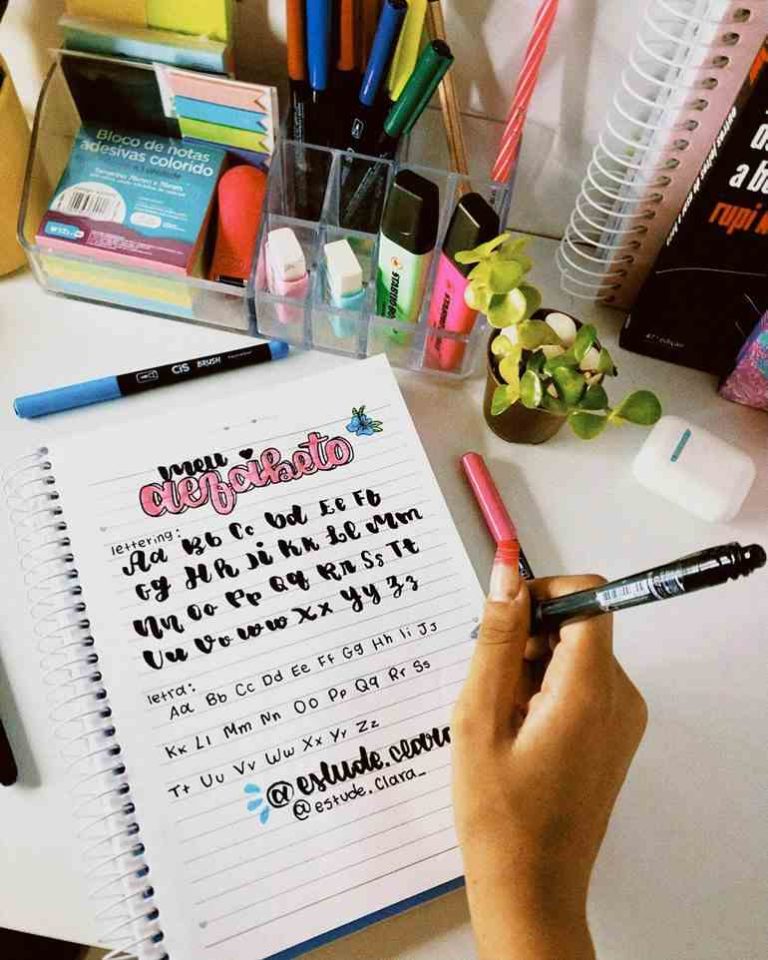 Bloco de notas
adesivas colorido
CiS BRUSH
STABILO
rupi
47ª edição
meu
alfabeto
lettering:
Aa Bb Cc Dd Ee Ff
Gg Hh Ii Kk Ll Mm
Nn Oo Pp Qq Rr Ss Tt
Uu Vv Ww Xx Yy Zz
letra:
Aa Bb Cc Dd Ee Ff Gg Hh Ii Jj
Kk Ll Mm Nn Oo Pp Qq Rr Ss
Tt Uu Vv Ww Xx Yy Zz
@estude.clara
@estude.clara_